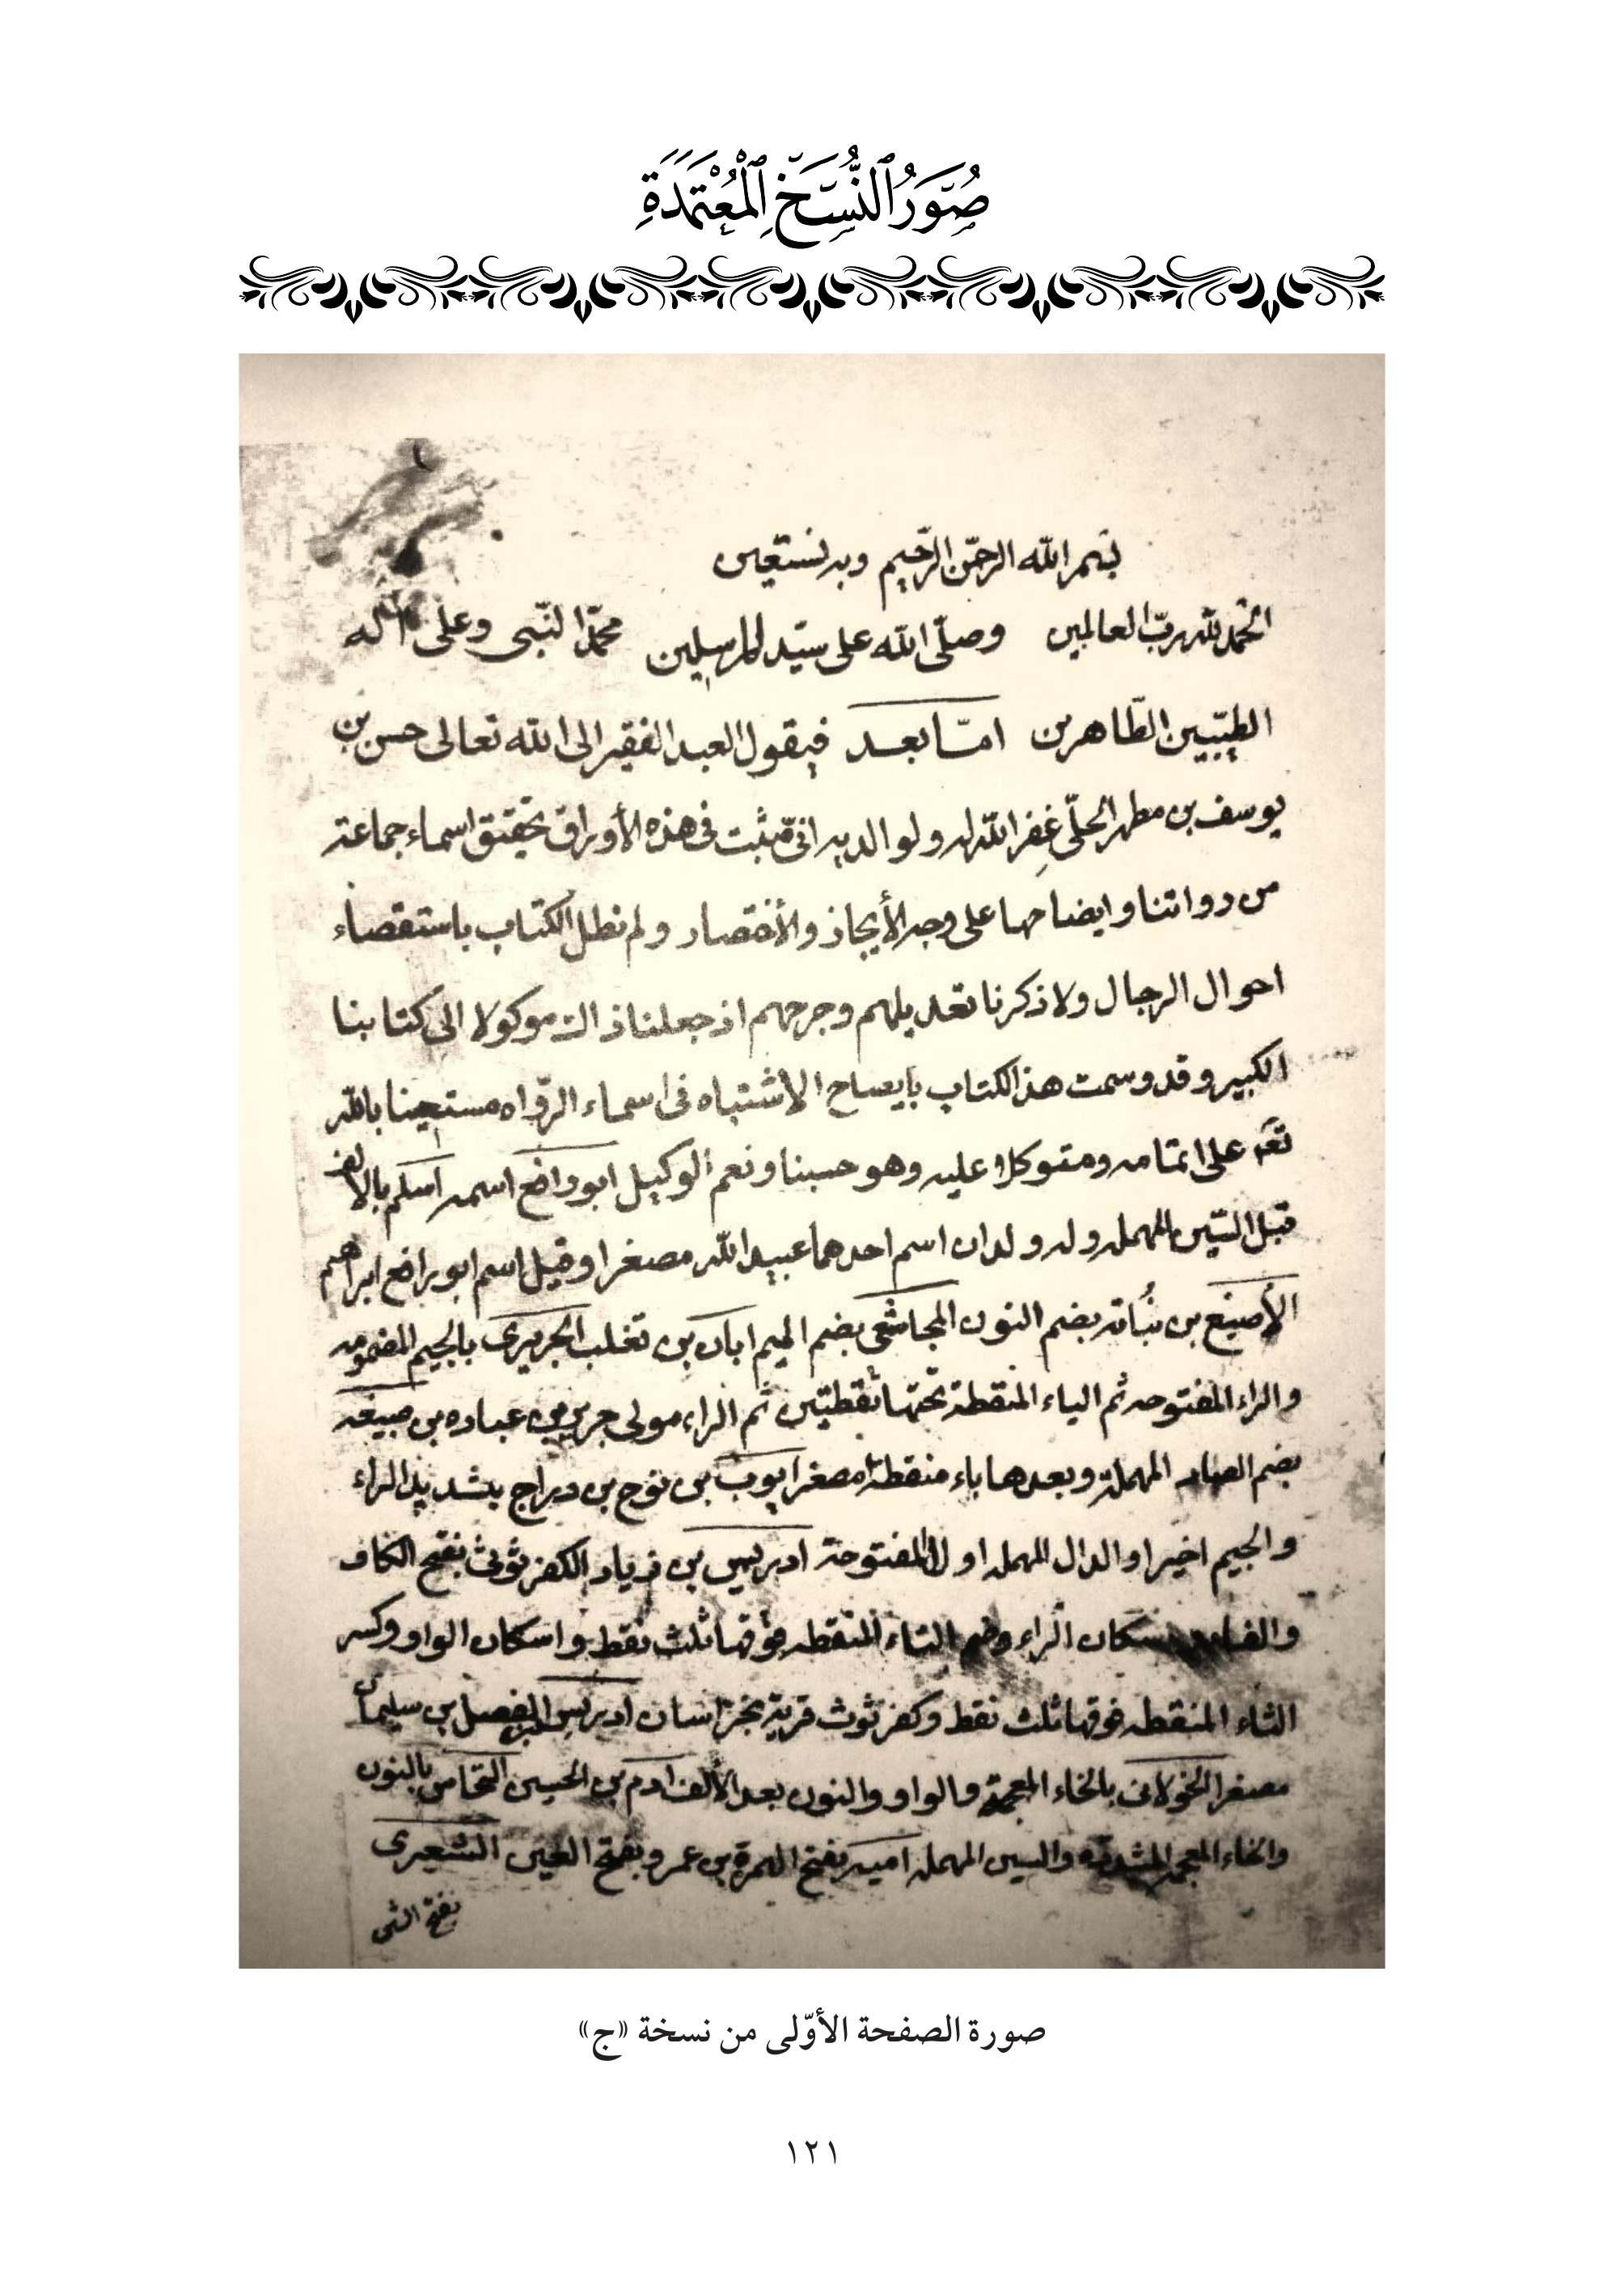 صُوَرُ ٱلنُّسَخِ ٱلْمُعْتَمَدَةِ
بسم الله الرحمن الرحيم وبه نستعين
الحمد لله رب العالمين وصلّى الله على سيّد المرسلين محمّد النبى وعلى آله
الطيّبين الطّاهرين امّا بعد فيقول العبد الفقير الى الله تعالى حسن بن
يوسف بن مطهر الحلّى غفر الله له ولوالديه انى مثبت فى هذه الأوراق تحقيق اسماء جماعة
من رواتنا وايضاحها على وجه الأيجاز والأختصار ولم نطل الكتاب باستقصاء
احوال الرجال ولا ذكرنا تعديلهم وجرحهم اذ جعلنا ذالك موكولا الى كتابنا
الكبير وقد وسمت هذا الكتاب بايضاح الاشتباه فى اسماء الرّواه مستعينا بالله
تعه على اتمامه ومتوكلا عليه وهو حسبنا ونعم الوكيل ابو رافع اسمه اسلم بالالف
قبل السّين المهمله وله ولدان اسم احدهما عبيد الله مصغرا وقيل اسم ابو رافع ابراهيم
الأصبغ بن نُباته بضم النون المجاشعى بضم الميم ابان بن تغلب الجريرى بالجيم المضمومه
والراء المفتوحه ثم الياء المنقطة تحتها نقطتين ثم الراء مولى جرير بن عباده بن ضبيعه
بضم الضاد المهملة وبعدها باء منقطة مصغرا ايوب بن نوح بن دراج بتشديد الراء
والجيم اخيرا والدال المهمله اولا المفتوحة ادريس بن زياد الكفرثوثى بفتح الكاف
والفاء واسكان الراء وضم الثاء المنقطه فوقها ثلث نقط واسكان الواو وكسر
الثاء المنقطه فوقها ثلث نقط وكفرثوث قرية بخراسان ادريس بن الفضل بن سليمان
مصغرا الخولانى بالخاء المعجمة والواو والنون بعد الألف ادم بن الحسين النخاس بالنون
والخاء المعجمه المشدده والسين المهمله اميه بفتح الهمزة بن عمرو بفتح العين الشعيرى
بفتح الشى
صورة الصفحة الأوّلى من نسخة «ج»
١٢١